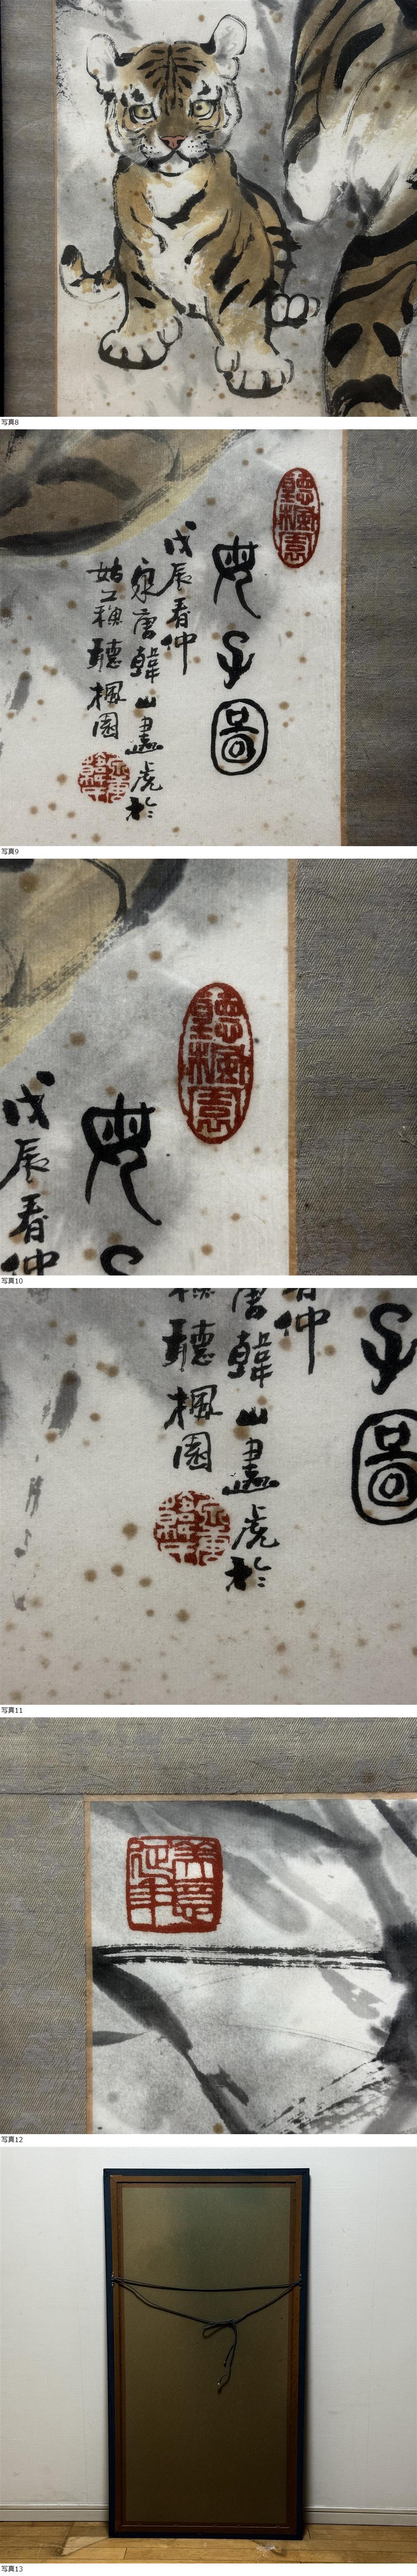 写真8
聽楓園
母子圖
戊辰春仲
泉唐韓山畫虎於
姑蘇聽楓園
写真9
聽楓園
母
戊辰春仲
写真10
子圖
仲
唐韓山畫虎於
聽楓園
写真11
美意延年
写真12
写真13